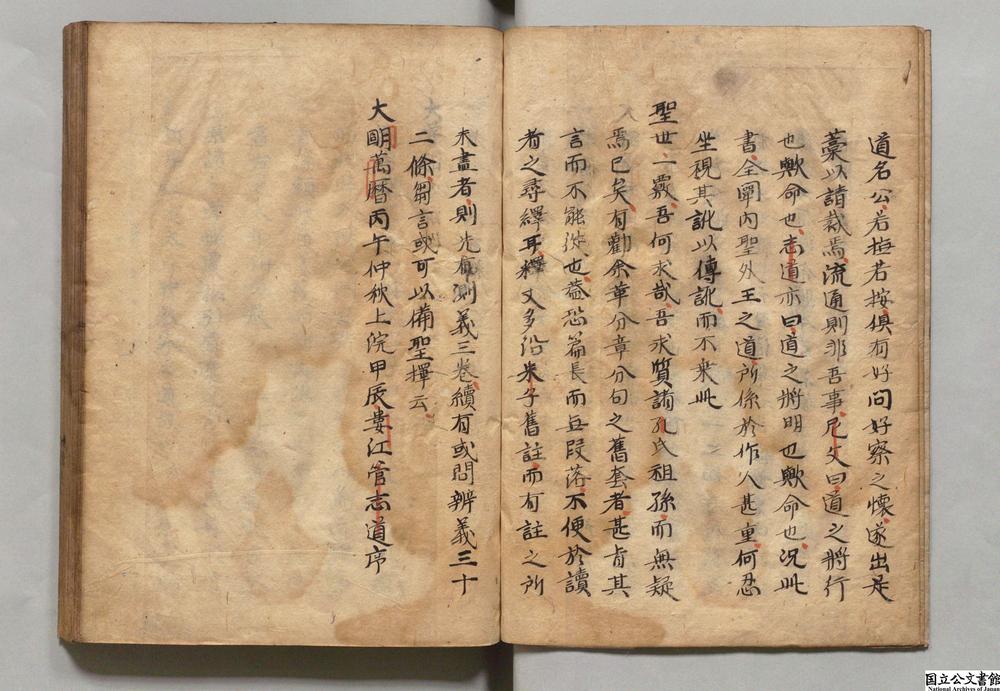 道名公若撫若按俱有好問好察之懷遂出是
藁以請裁焉流通則非吾事尼父曰道之將行
也歟命也志道亦曰道之將明也歟命也況此
書全闡內聖外王之道所係於作人甚重何忍
坐視其訛以傳訛而不乘此
聖世一覈吾何求哉吾求質諸孔氏祖孫而無疑
焉已矣有勸余華分章分句之舊套者甚肯其
言而不能從也蓋恐篇長而無段落不便於讀
者之尋繹耳釋文多沿朱子舊註而有註之所
未盡者則先有測義三卷續有或問辨義三十
二條芻言或可以備聖擇云
大明萬曆丙午仲秋上浣甲辰婁江管志道序
国立公文書館
National Archives of Japan